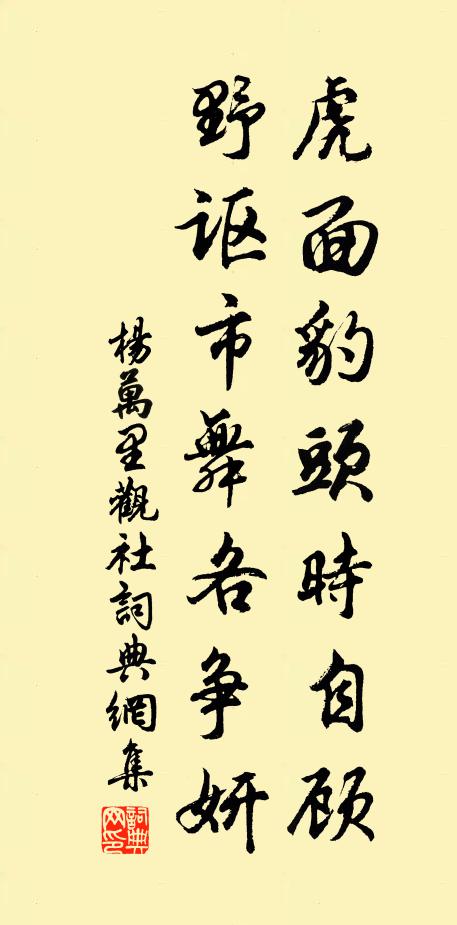 虎面豹頭時自顾
野讴市舞各争妍
楊萬里觀社詞典網集
詞典网印